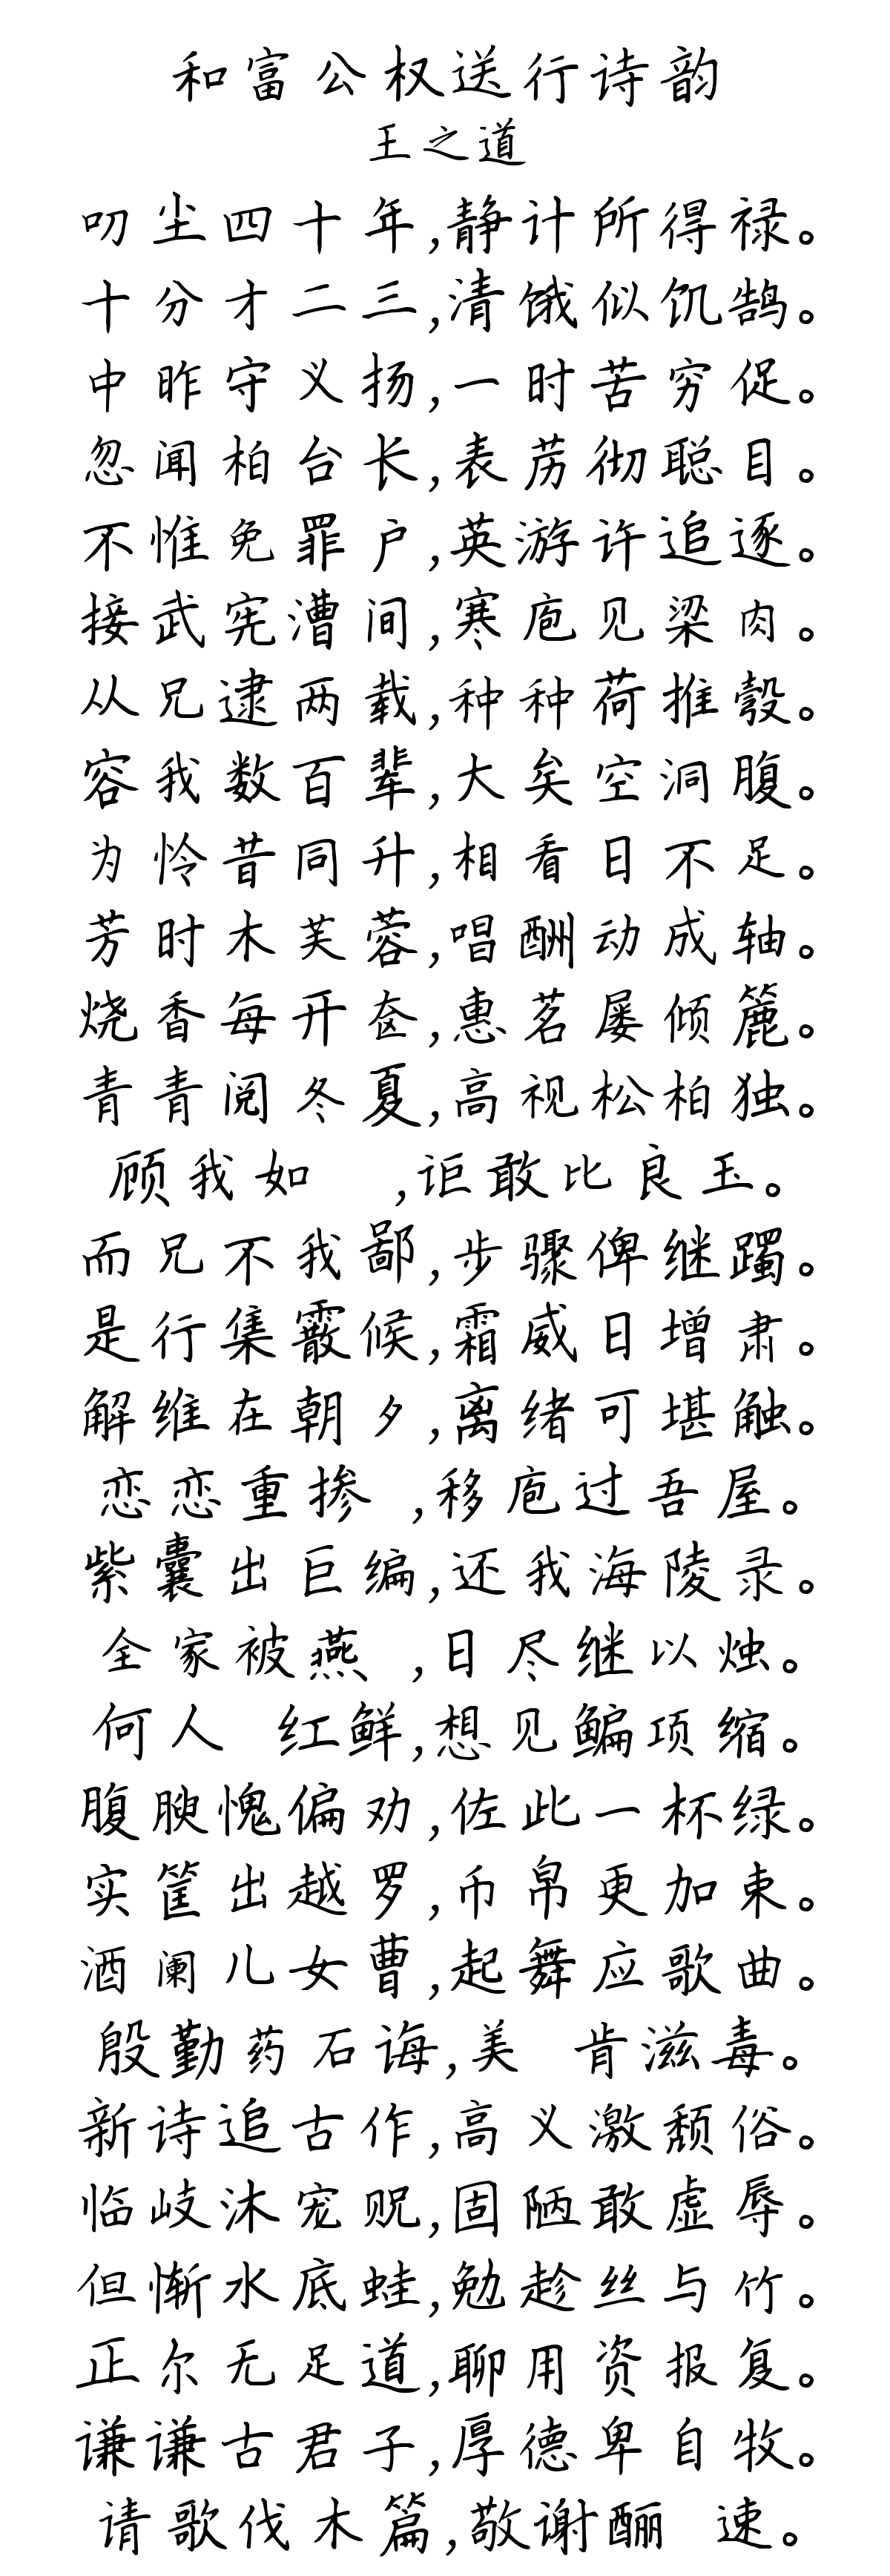 和富公权送行诗韵
王之道
叨尘四十年,静计所得禄。
十分才二三,清饿似饥鹄。
中昨守义扬,一时苦穷促。
忽闻柏台长,表苈彻聪目。
不惟免罪户,英游许追逐。
接武宪漕间,寒庖见梁肉。
从兄逮两载,种种荷推毂。
容我数百辈,大矣空洞腹。
为怜昔同升,相看日不足。
芳时木芙蓉,唱酬动成轴。
烧香每开奁,惠茗屡倾簏。
青青阅冬夏,高视松柏独。
顾我如 ,讵敢比良玉。
而兄不我鄙,步骤俾继躅。
是行集霰候,霜威日增肃。
解维在朝夕,离绪可堪触。
恋恋重掺 ,移庖过吾屋。
紫囊出巨编,还我海陵录。
全家被燕 ,日尽继以烛。
何人 红鲜,想见鳊项缩。
腹腴愧偏劝,佐此一杯绿。
实筐出越罗,币帛更加束。
酒阑儿女曹,起舞应歌曲。
殷勤药石诲,美 肯滋毒。
新诗追古作,高义激颓俗。
临歧沐宠贶,固陋敢虚辱。
但惭水底蛙,勉趁丝与竹。
正尔无足道,聊用资报复。
谦谦古君子,厚德卑自牧。
请歌伐木篇,敬谢酾 速。